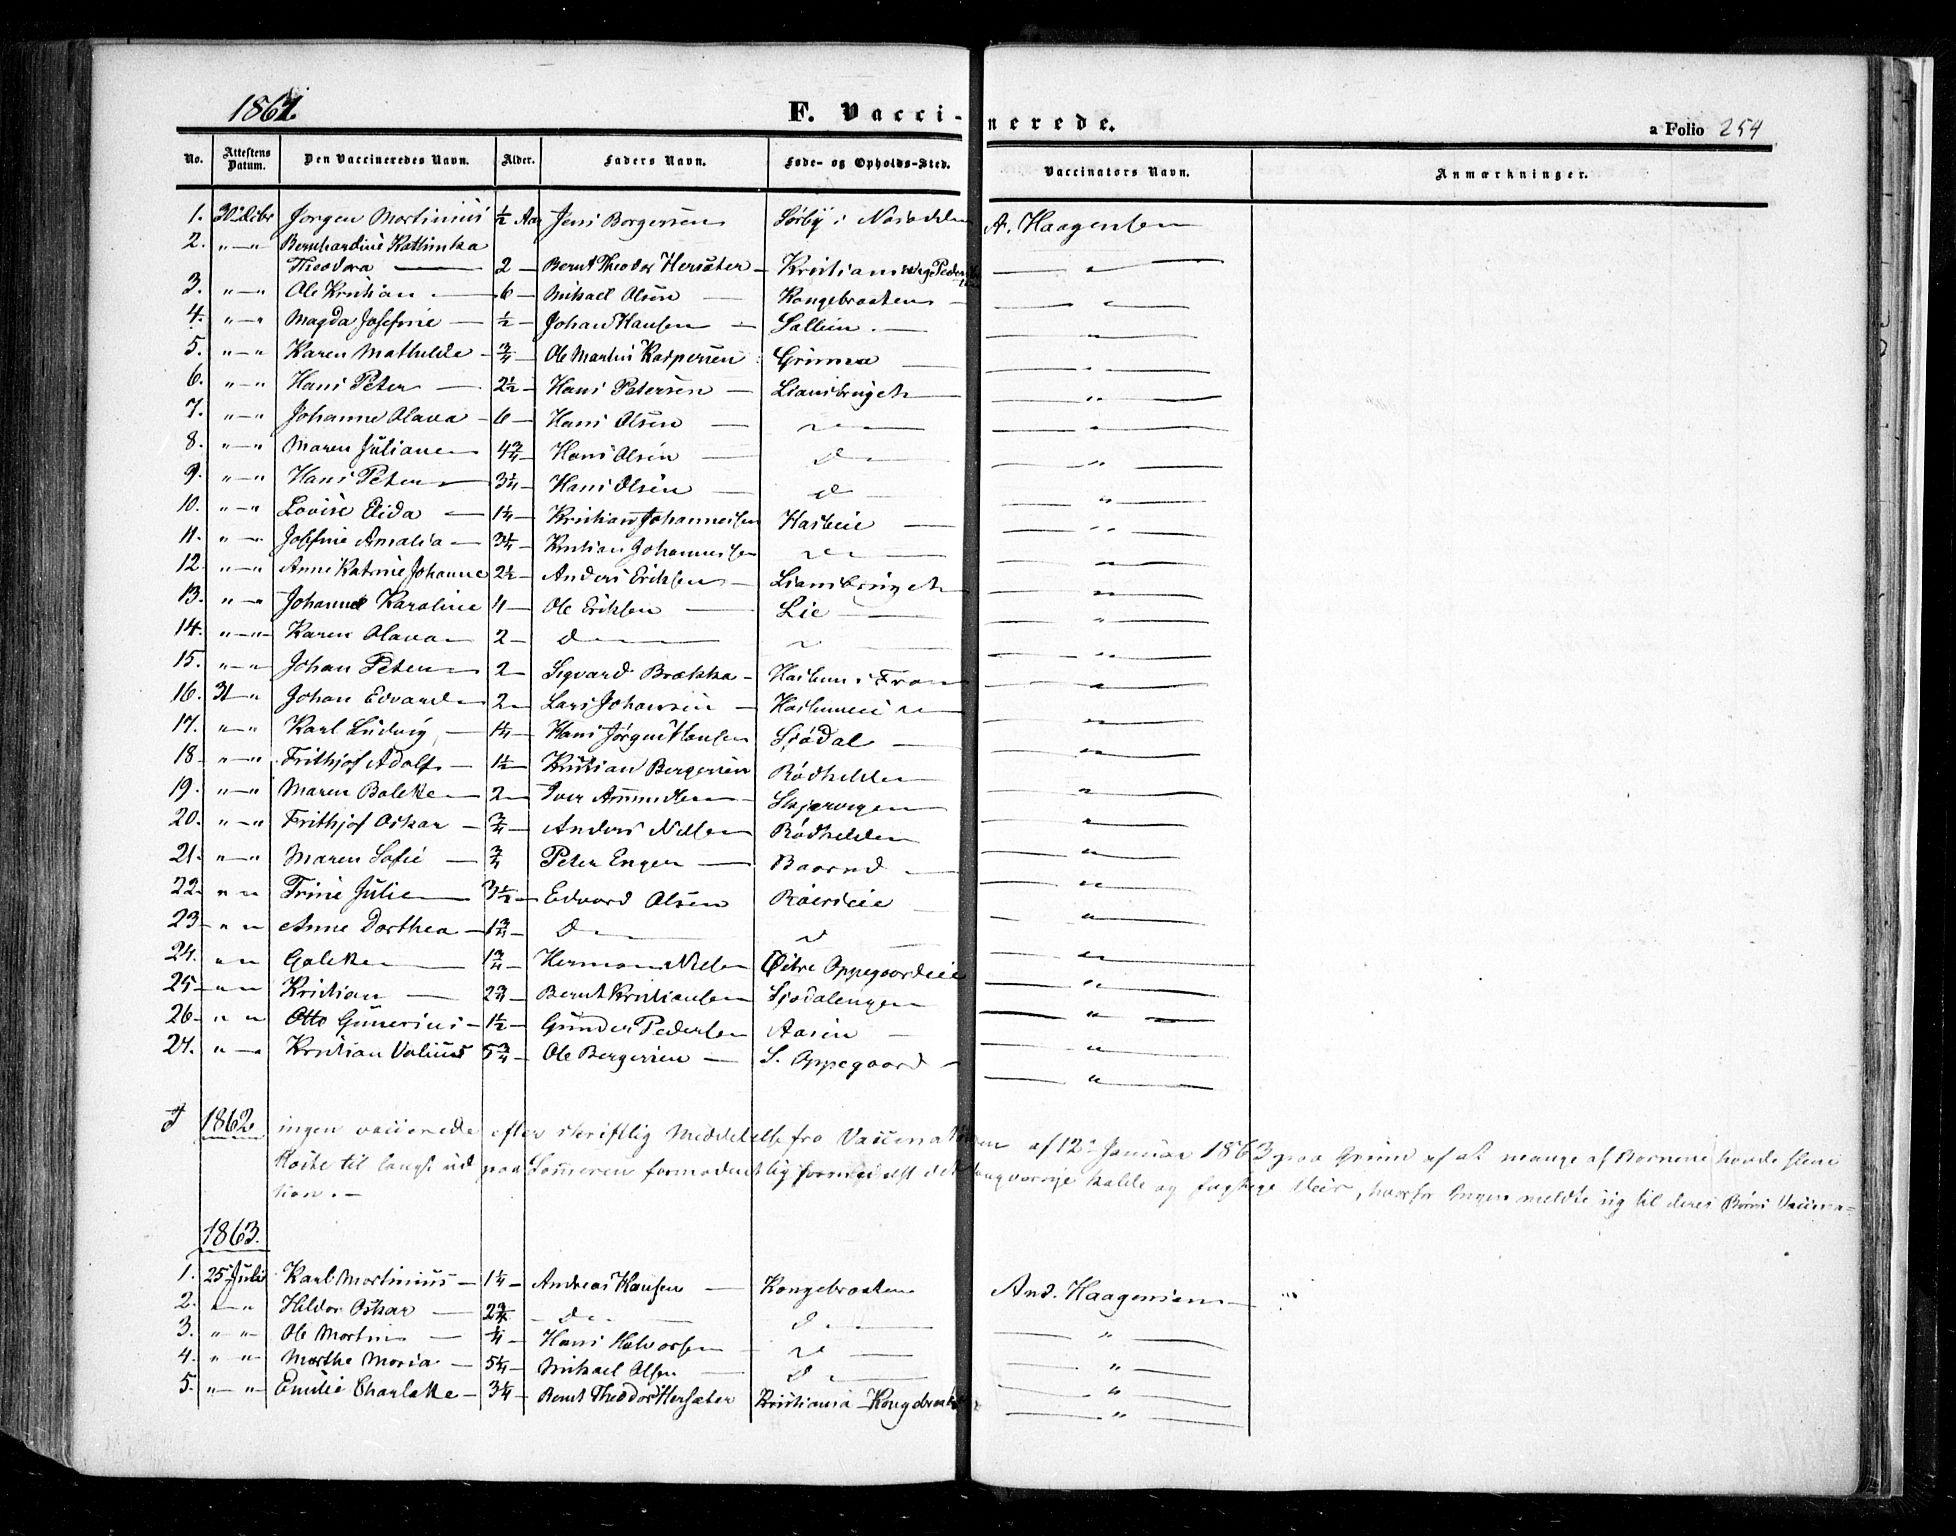 1861.
F. Vaccinerede.
a Folio 254
No. Attestens Datum. Den Vaccineredes Navn. Alder. Faders Navn. Føde- og Opholds-Sted. Vaccinators Navn. Anmærkninger.
1. 30 Jørgen Martinius ½ Aar Jens Borgersen Sørby i A. Haagensen
2. " — " Bernhardine Kathinka
Theodora — 2 — Bernt Theodor Hersæter — Kristiania — " —
3. " — " Ole Kristian — 6 — Mikael Olsen — Kongebraaten — " —
4. " — " Magda Josefine — ½ — Johan Hansen — — " —
5. " — " Karen Mathilde — ¾ — Ole Martin Kaspersen Grimsa — " —
6. " — " Hans Peter — 2½ — Hans Petersen — Liansbruget — " —
7. " — " Johanne Olava — 6 — Hans Olsen — — " —
8. " — " Maren Juliane 4¾ — Hans Olsen — d — — " —
9. " — " Hans Peter — 3¼ — Hans Olsen — d — — " —
10. " — " Lovise Elida — 1¼ — Kristian Johannessen — " —
11. " — " Josefine Amalia — 3¼ — Kristian Johannessen — " —
12. " — " Anne Katrine Johanne 2½ — Anders Eriksen — Liansbruget — " —
13. " — " Johanne Karoline 4 — Ole Eriksen — Lie — — " —
14. " — " Karen Olava — 2 — d — — " —
15. " — " Johan Peter — 2 — Sigvard Brække — — " —
16. 31 — " Johan Edvard 2 — Lars Johansen — — " —
17. " — " Karl Ludvig — 1¼ — Hans Jørgen Hansen Sjødal — — " —
18. " — " Frithjof Adolf — 1½ — Kristian Bergersen Rødhelden — " —
19. " — " Maren Bolette — 2 — Iver Amundsen — — " —
20. " — " Frithjof Oskar — ¾ — Anders Nilsen Rødhelden — " —
21. " — " Maren Sofie — ¾ Peter Engen — — " —
22. " " Trine Julie — 3½ — Edvard Olsen — " —
23. " " Anne Dorthea — 1¾ — d — — " —
24. " " Galette — 1¾ — Herman Nilsen Østre Oppegaardeie — " —
25. " " Kristian — 2¾ — Bernt Kristiansen Sjødalengen — " —
26. " " Otto Gunerius — 1½ — Gunder Pedersen Aasen — — " —
27. " — " Kristian Valius 5¾ — Ole Bergersen — S. Oppegaard — — " —
I 1862 ingen vaccinerede efter skriftlig Meddelelse fra Vaccinatøren af 12 Januar 1863 paa Grund af at mange af Børnene havde slem
Hoste til langt ud paa Sommeren formodentlig formedelst det langvarige kolde og fugtige Veir, hvorfor Ingen meldte sig til deres Børns Vaccina=
tion. —
1863.
1. 25 Juli Karl Martinius — 1¼ — Andreas Hansen — Kongebraaten And. Haagensen — "
2. " — " Hildor Oskar — 2¾ — d — d —
3. " " Ole Martin — ¼ — Hans Halvorsen — — " —
4. " " Marthe Maria — 5¼ — Mikael Olsen — d — — " —
5. " — " Emilie Charlotte — 3¼ — Bernt Theodor Hersæter Kristiania — Kongebraaten — " —